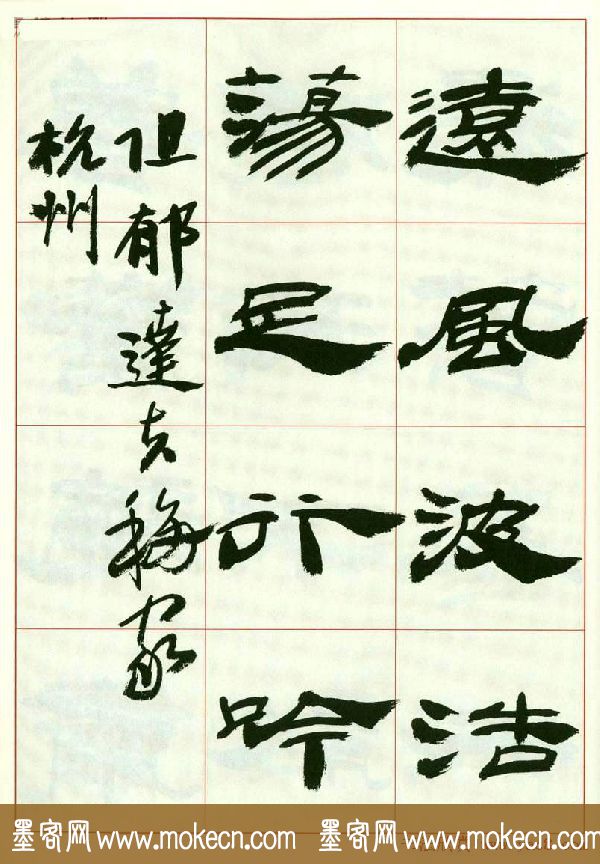 遠風波浩
蕩足行吟
阻郁達夫移家
杭州
墨客网 www.mokecn.com 墨客网 www.mokecn.com